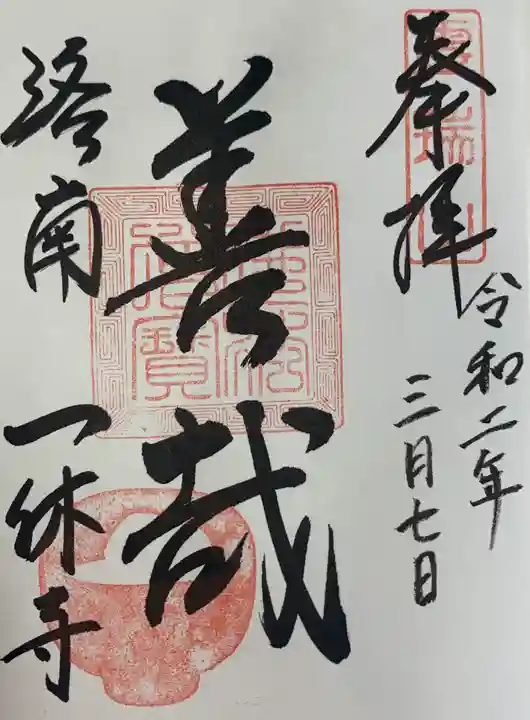 奉拝
令和二年
三月七日
善哉
洛南
一休寺